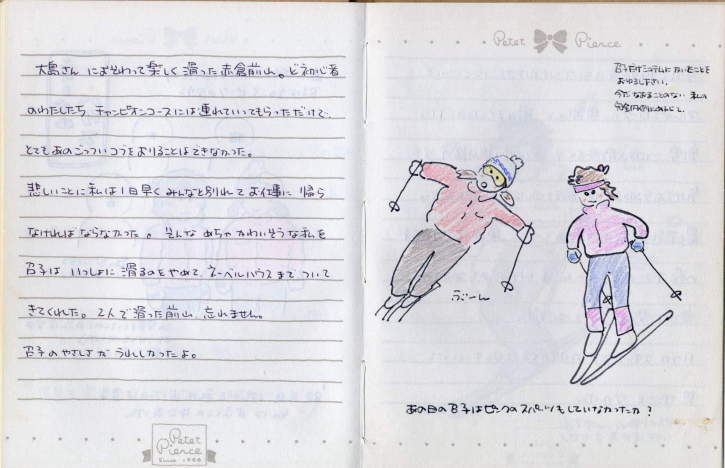 大島さん におそわって楽しく 滑った赤倉前山。ど初心者
のわたしたち、チャンピオンコースには連れていってもらっただけで、
とてもあのごっついコブをおりることはできなかった。
悲しいことに私は1日早く みんなと別れて お仕事に 帰ら
なければならなかった。そんな めちゃ かわいそうな私を
召子は いっしょに 滑るのをやめて、ついて
きてくれた。2人で滑った前山 忘れません。
召子のやさしさが うれしかったよ。
Peter Pierce
Since 1988
Peter Pierce
召子だけ
おゆるし下さい。
今だ なおることのない 私の
ぶーん
あの日の召子はピンクのスパッツをしていなかったか?